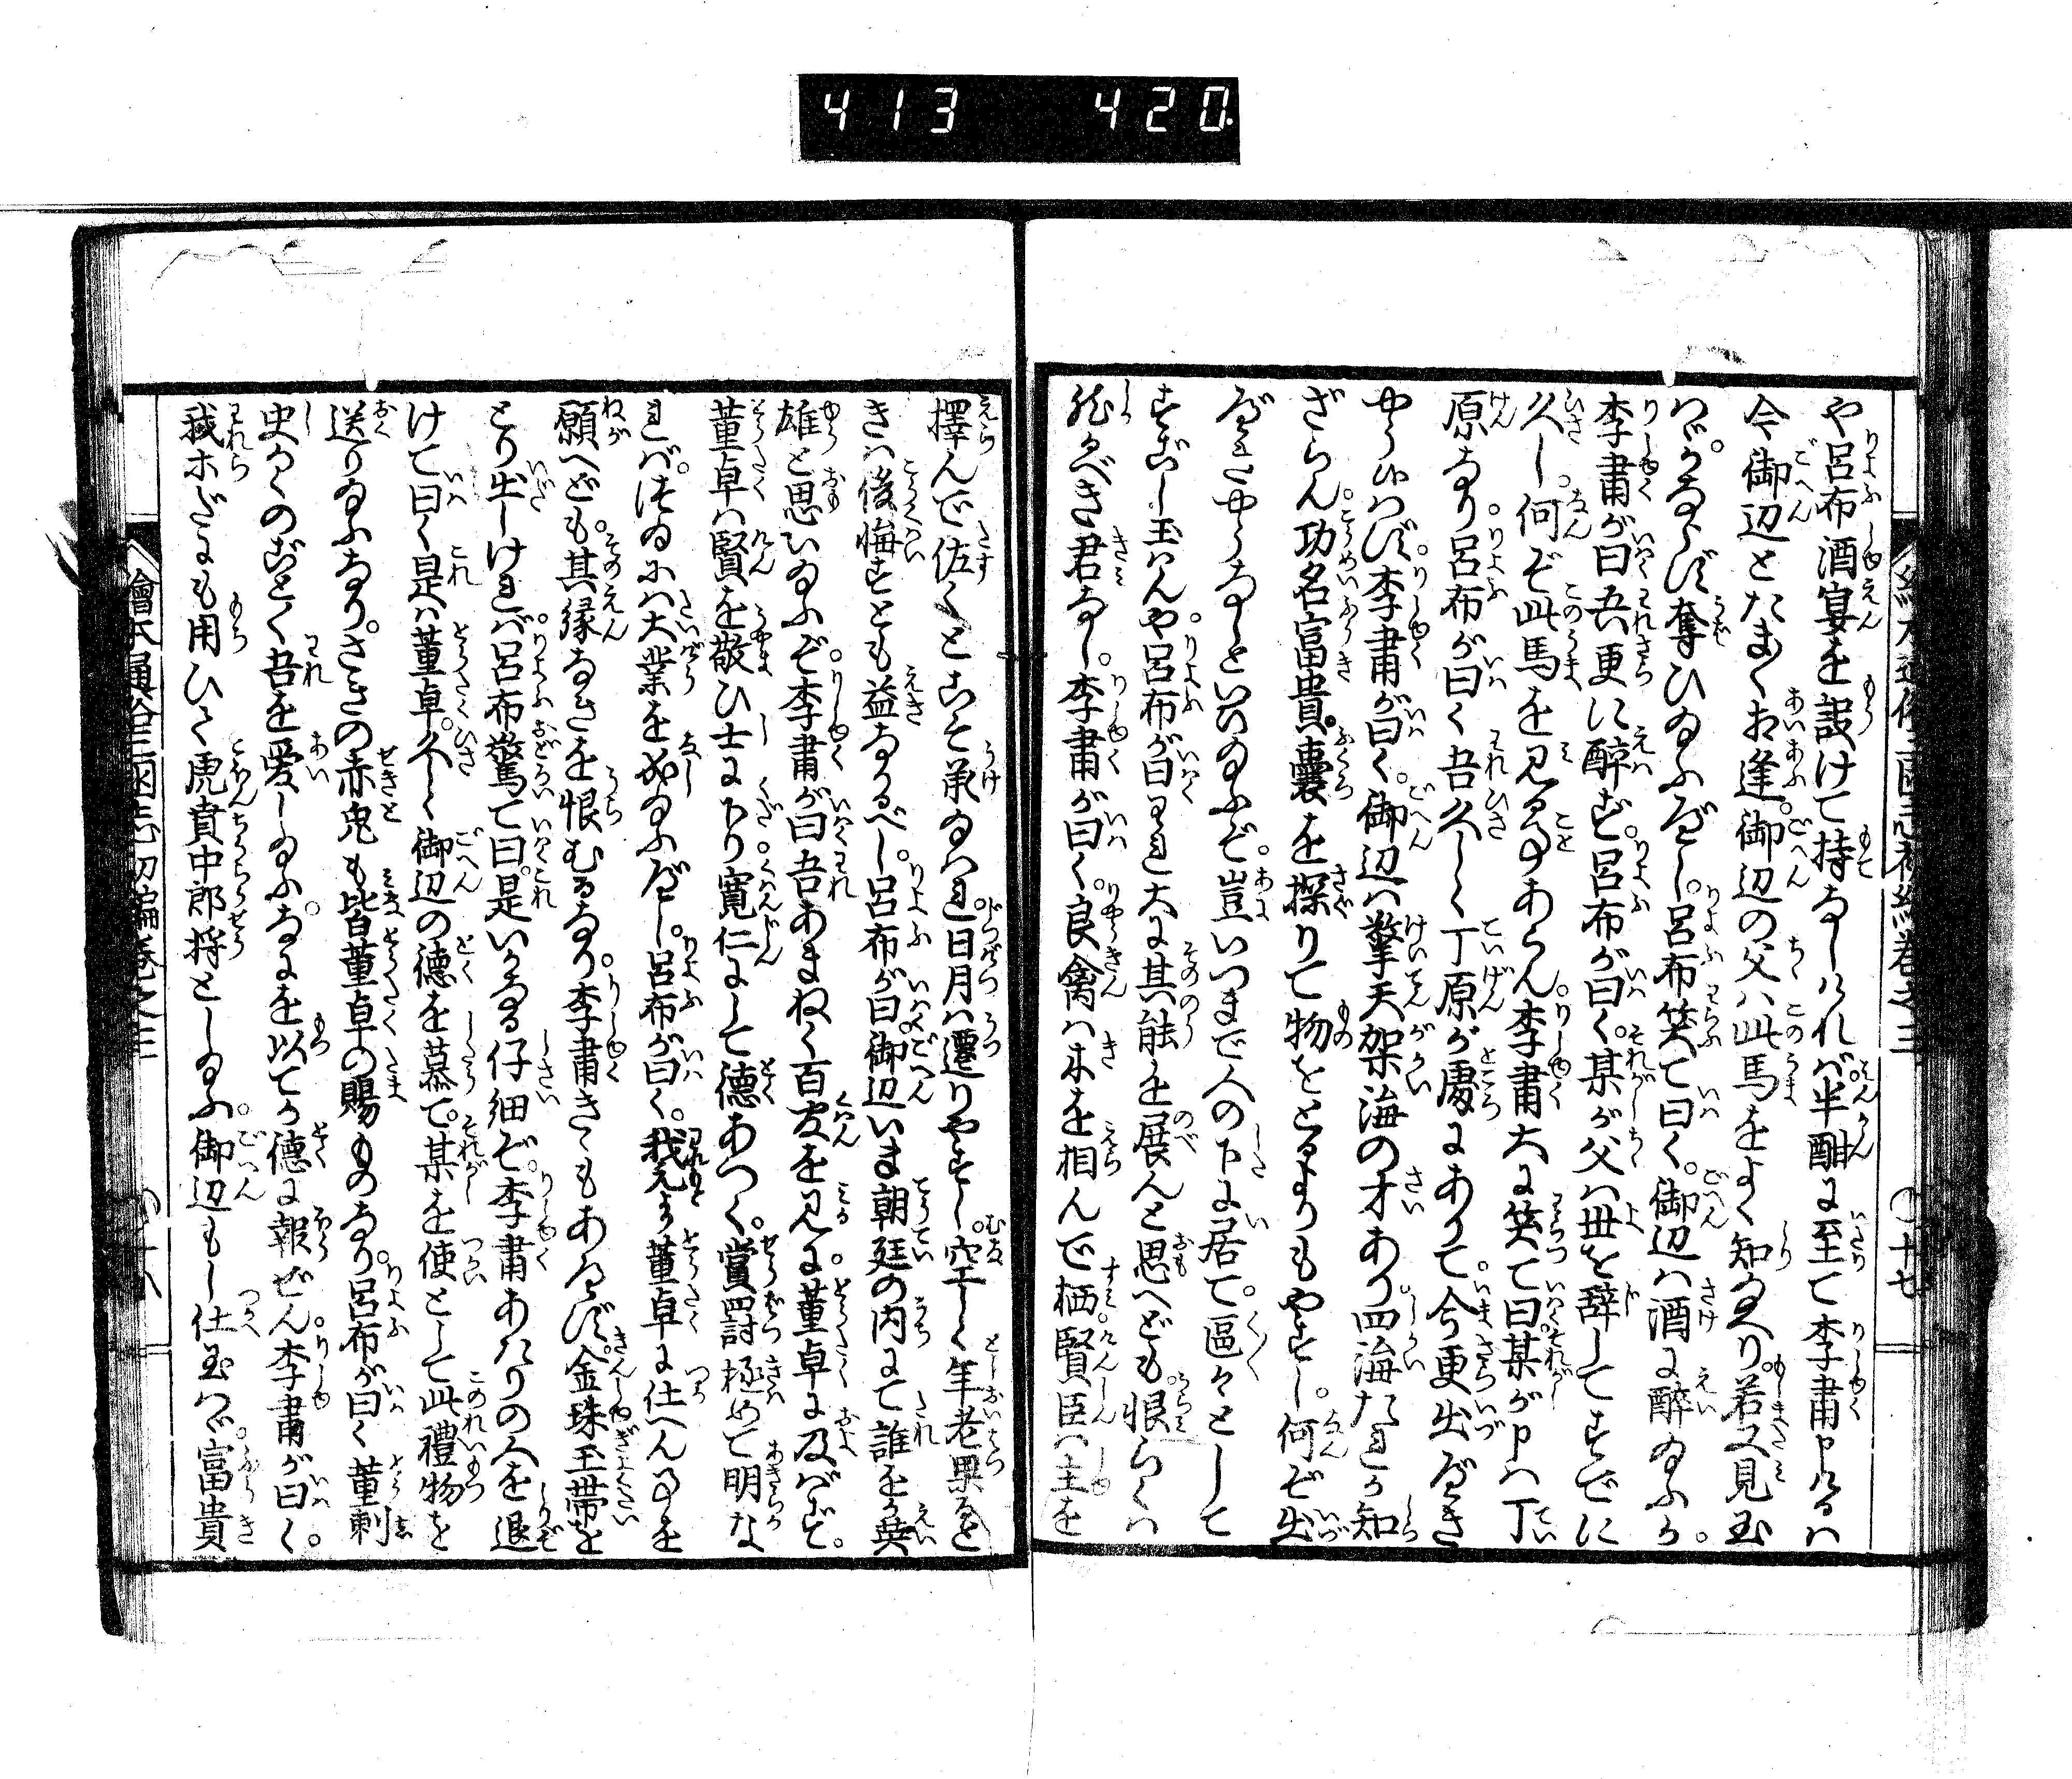 413 420
繪本通俗三國志初編巻之三 ○十七
や呂布酒宴を設けて持なしければ半酣に至て李肅申けるハ
今御辺とたま〱相逢御辺の父ハ此馬をよく知なり若又見玉
ハゞかならず奪ひ給ふべし呂布笑て曰く御辺ハ酒に醉給ふか
李肅が曰吾更に醉ず呂布が曰く某が父ハ世を辞してすでに
久し何ぞ此馬を見る事あらん李肅大に笑て曰某が申ハ丁
原なり呂布が曰く吾久しく丁原が處にありて今更出べき
やうハず李肅が曰く御辺ハ擎天架海の才あり四海たれか知
ざらん功名富貴囊を探りて物をとるよりもやすし何ぞ出
べきやうなしといひ給ふぞ豈いつまで人の下に居て區々として
すごし玉ハんや呂布が曰われ大に其能を展んと思へども恨らくハ
然べき君なし李肅が曰く良禽ハ木を相んで栖賢臣ハ主を
擇んで佐くとこそ承ハれ日月ハ遷りやすし空しく年老果なと
きハ後悔すとも益なるべし呂布が曰御辺いま朝廷の内にて誰をか英
雄と思ひ給ふぞ李肅が曰吾あまねく百官を見に董卓に及ばず
董卓ハ賢を敬ひ士に下り寛仁にして德あつく賞罰極めて明な
れバつゐにハ大業を成給ふべし呂布が曰く我元より董卓に仕へん事を
願へども其縁なきを恨むるなり李肅きくもあへず金珠玉帯を
とり出しけれバ呂布驚て曰是いかなる仔細ぞ李肅あたりの人を退
けて曰く是ハ董卓久しく御辺の德を慕て某を使として此禮物を
送り給ふなりさきの赤兎も皆董卓の賜ものなり呂布が曰く董刺
史かくのごとく吾を愛し給ふなにを以てか德に報ぜん李肅が曰く
我ホだにも用ひて虎賁中郎将とし給ふ御辺もし仕玉ハゞ富貴
繪本通俗三國志初編巻之三 ○十八